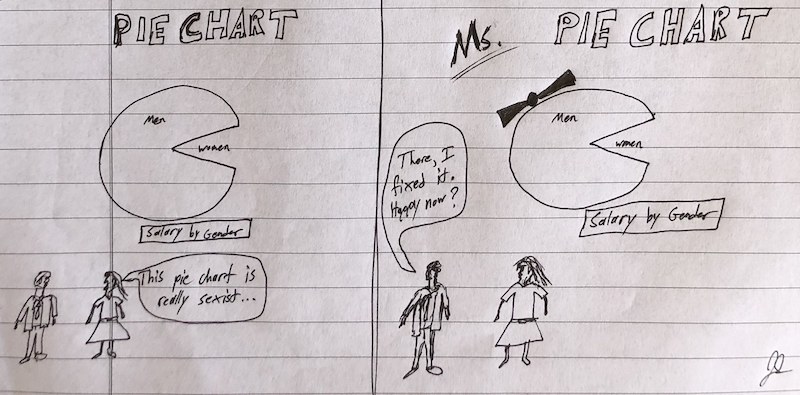 PIE CHART
Men
women
Salary by Gender
This pie chart is
really sexist...
Ms.
PIE CHART
Men
women
Salary by Gender
There, I
fixed it.
Happy now?